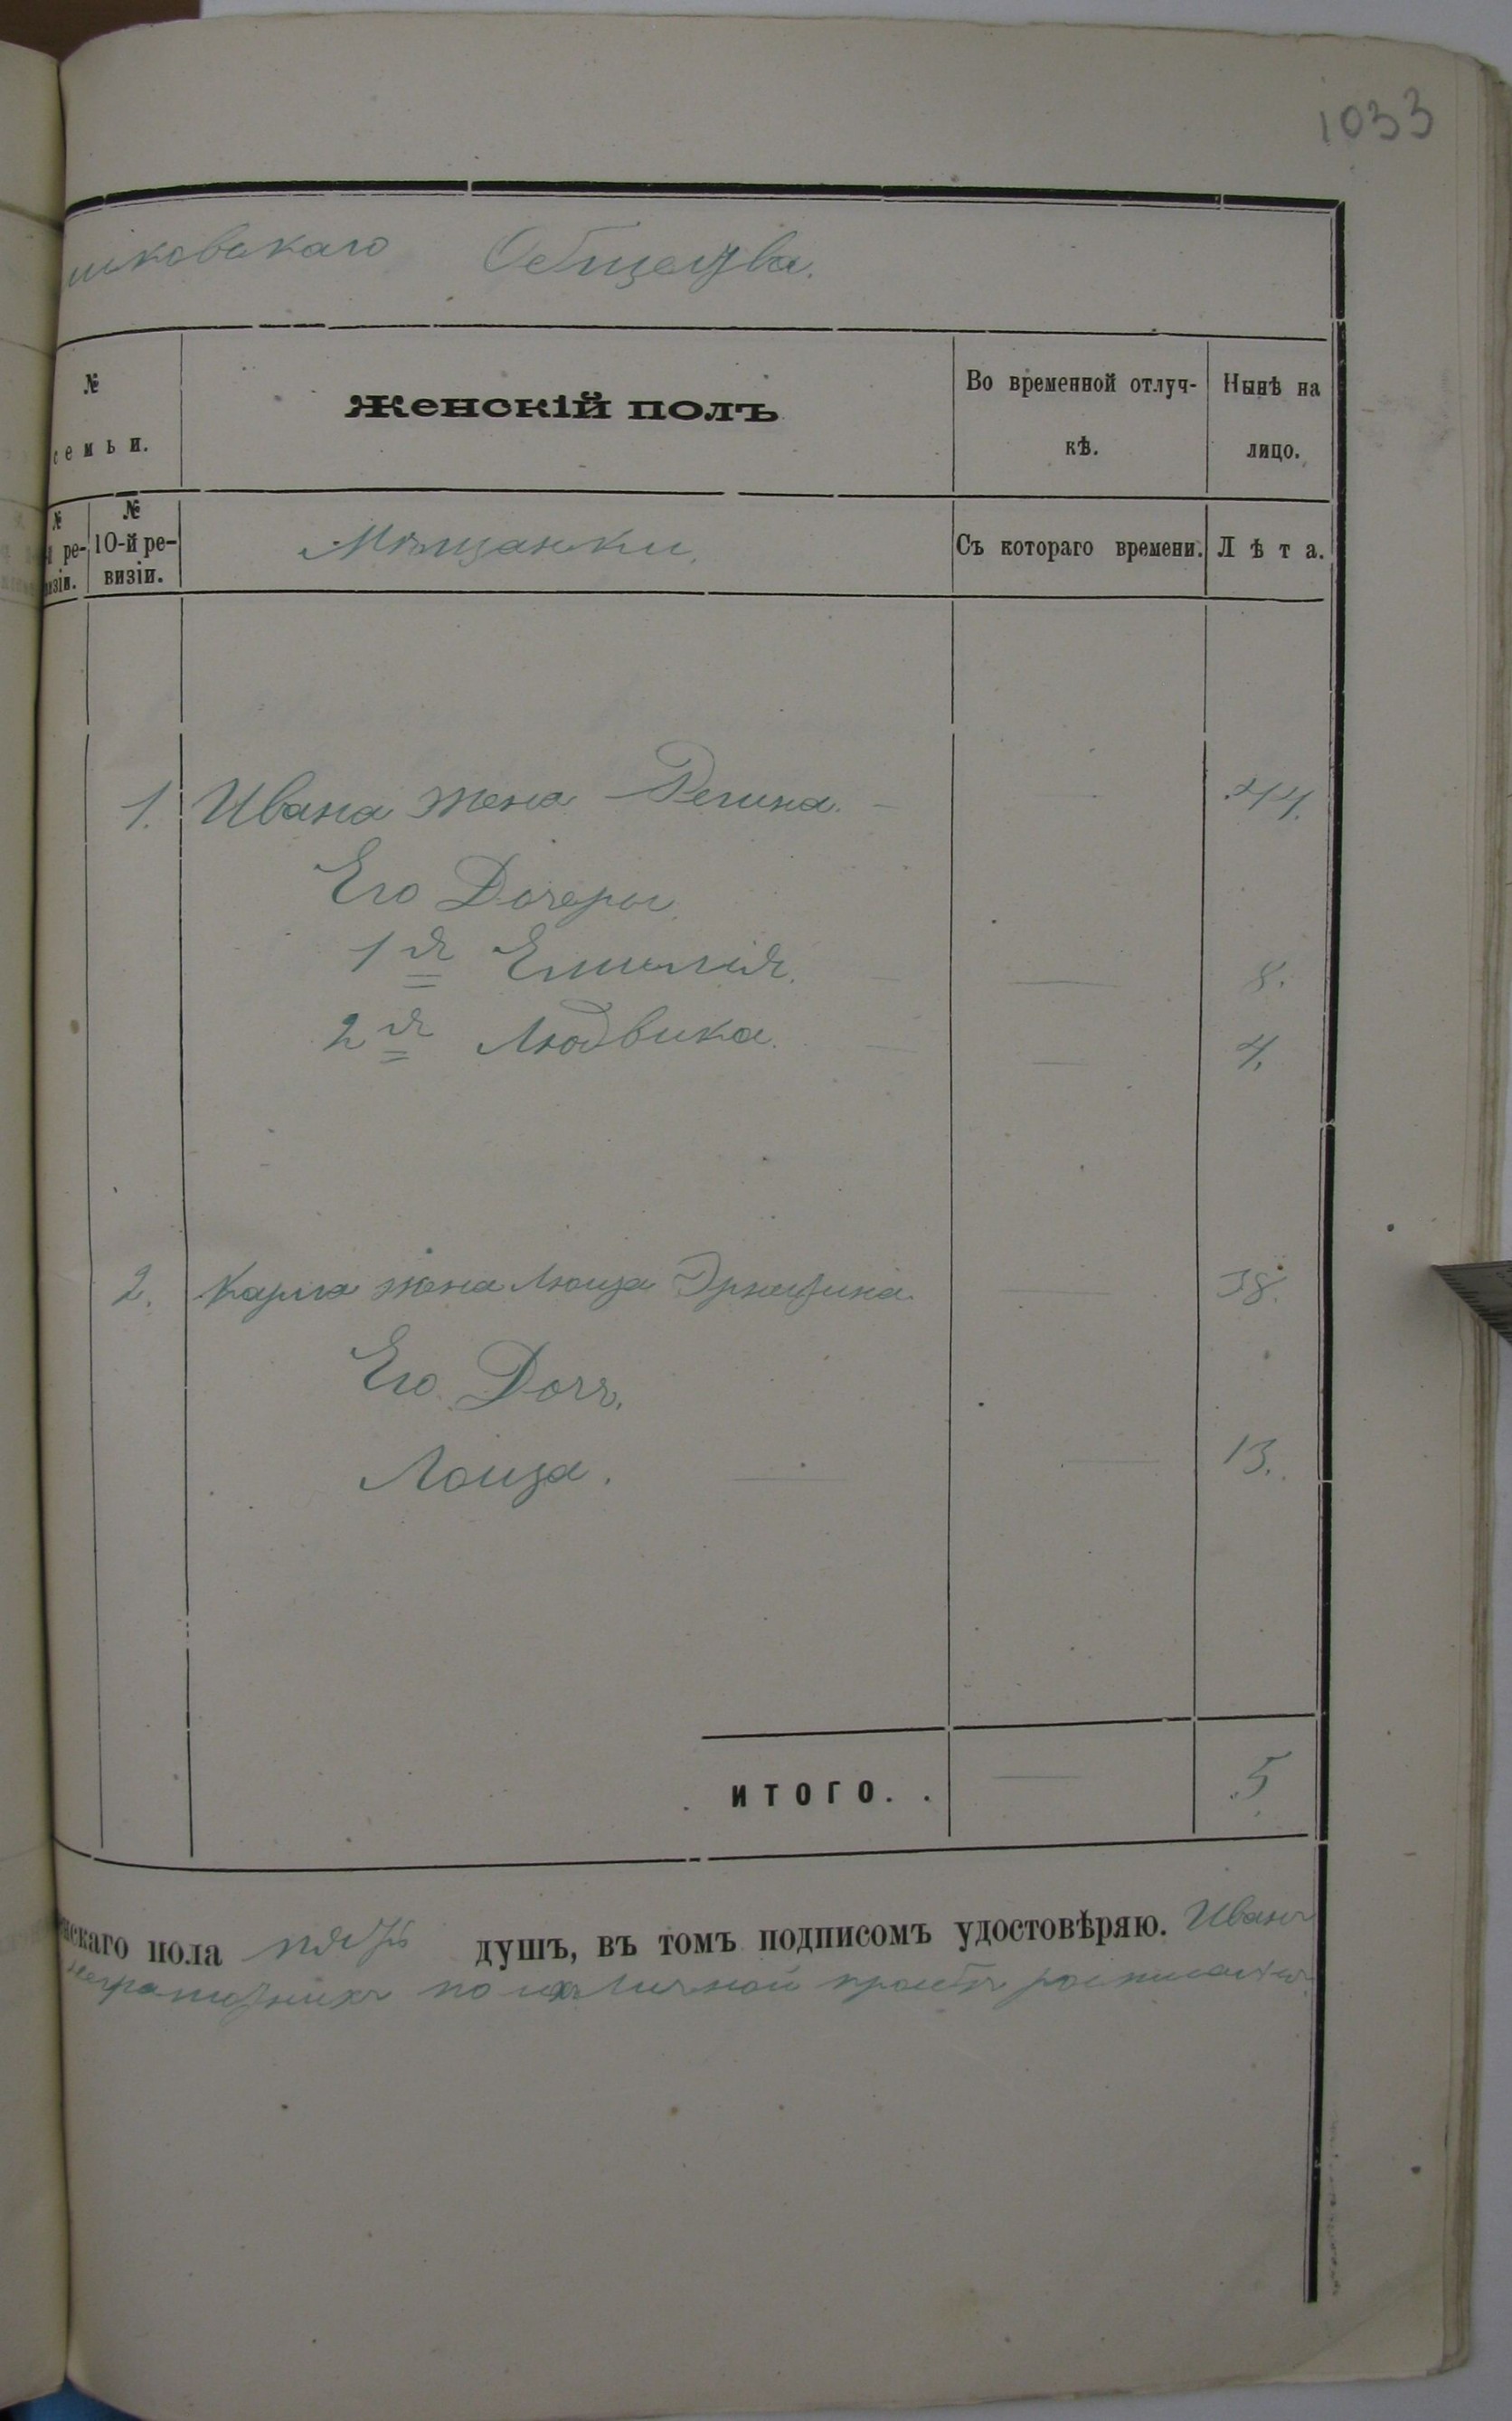 1033
шковскаго Общества.
№ семьи.
Женскій полъ
Во временной отлуч-
кѣ.
Нынѣ на
лицо.
№
й ре-
визіи.
№
10-й ре-
визіи.
Мѣщанки.
Съ котораго времени.
Лѣта.
1. Ивана жена Регина. — — 44.
Его Дочеры
1я Емилія. — — 8.
2я Людвика. — — 4.
2. Карла жена Луиза Эрнестина — 38.
Его Дочь,
Лоиза. — — 13.
ИТОГО. . — 5
нскаго пола пять душъ, въ томъ подписомъ удостовѣряю. Иванъ
по ихъ личной просьбѣ